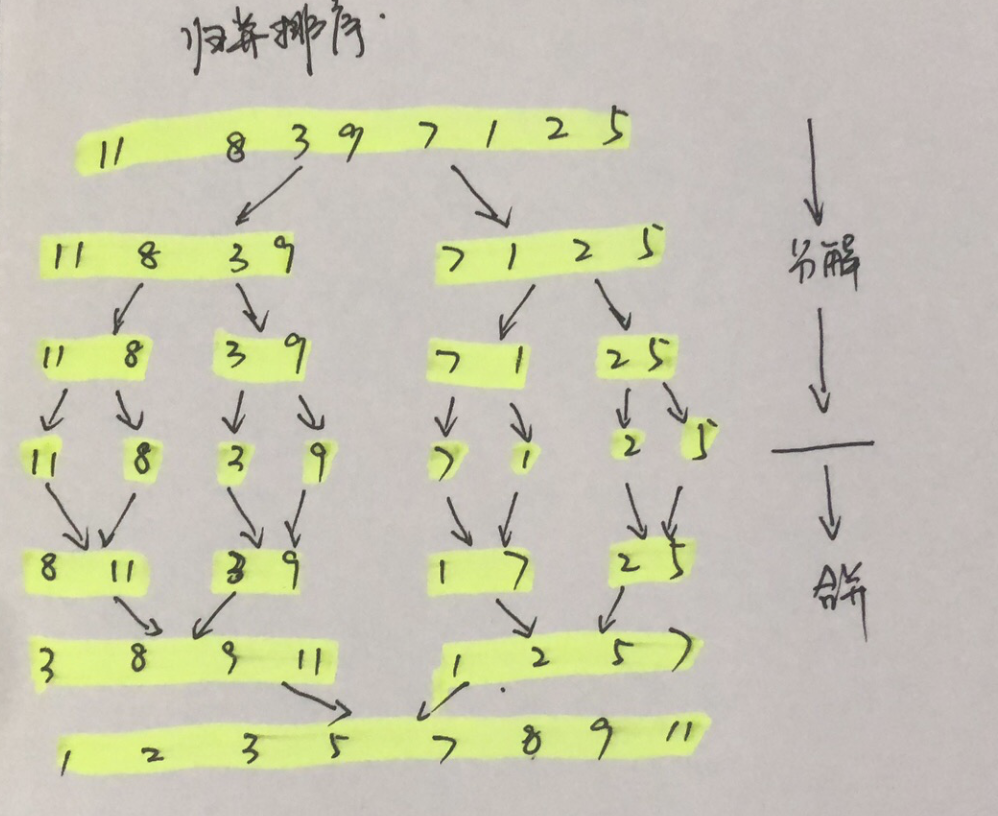 归并排序
11 8 3 9 7 1 2 5
11 8 3 9 7 1 2 5
分解
11 8 3 9 7 1 2 5
11 8 3 9 7 1 2 5
8 11 3 9 1 7 2 5
合并
3 8 9 11 1 2 5 7
1 2 3 5 7 8 9 11